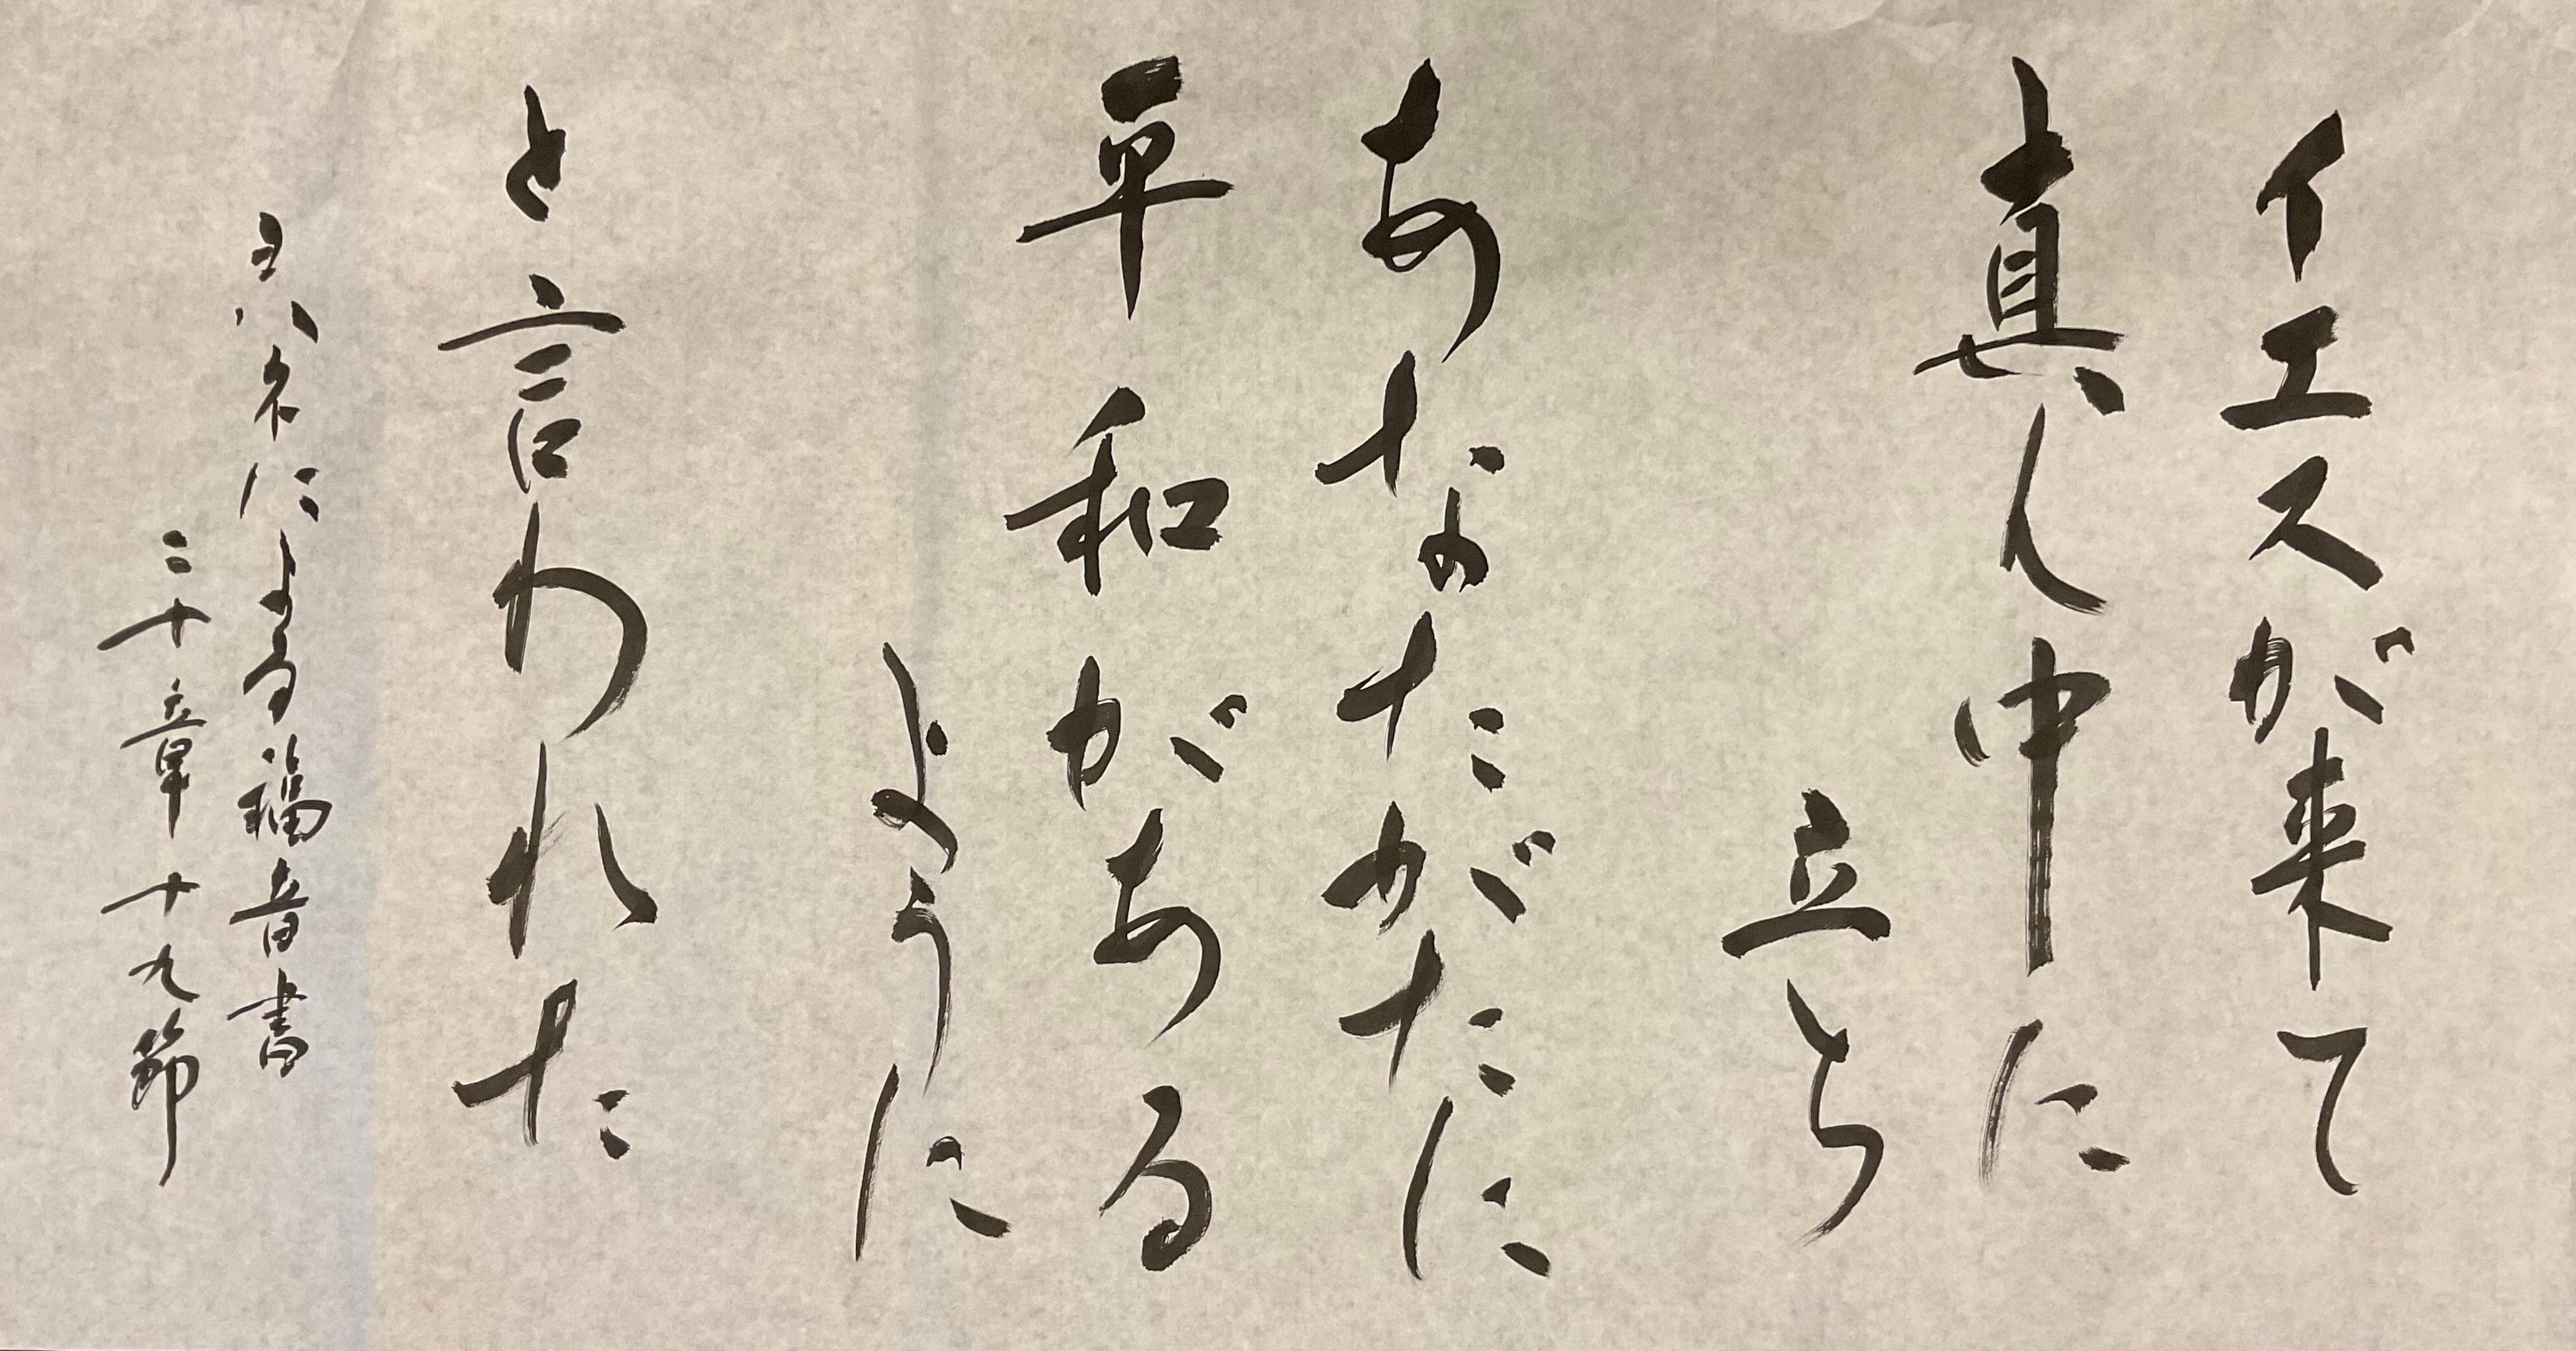 イエスが来て
真ん中に
立ち
あなたがたに
平和がある
ように
と言われた
ヨハネによる福音書
二十章十九節